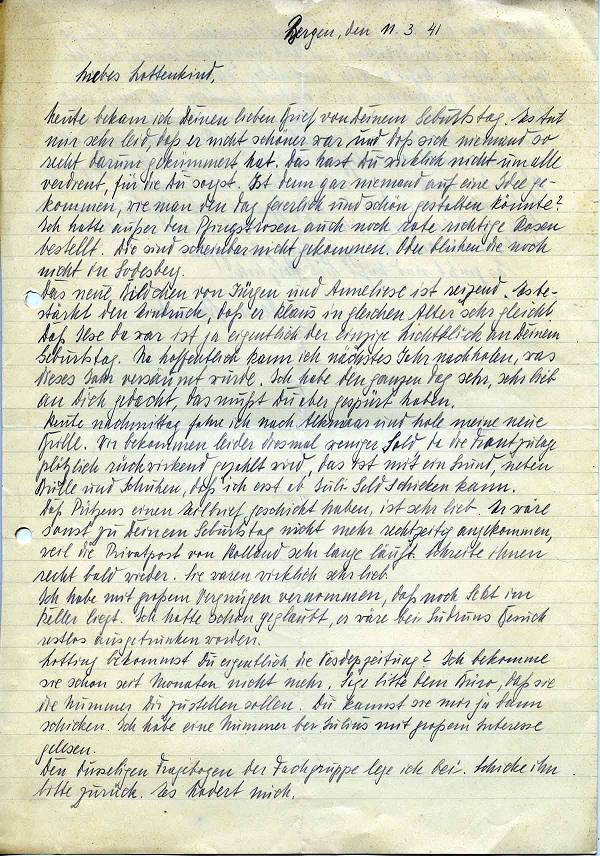 Bergen, den 11. 3. 41
Liebes Lottenkind,
heute bekam ich Deinen lieben Brief von Deinem Geburtstag. Es tut
mir sehr leid, daß er nicht schöner war und daß sich niemand so
recht darum gekümmert hat. Das hast Du wirklich nicht um alle
verdient, für die Du sorgst. Ist denn gar niemand auf eine Idee ge-
kommen, wie man den Tag feierlich und schön gestalten könnte?
Ich hatte außer den Pfingstrosen auch noch rote richtige Rosen
bestellt. Die sind scheinbar nicht gekommen. Oder blühen die noch
nicht in Godesberg.
Das neue Bildchen von Jürgen und Anneliese ist reizend. Es be-
stärkt den Eindruck, daß er Klaus in gleichen Alter sehr gleicht.
Daß Ilse da war ist ja eigentlich der einzige Lichtblick an Deinem
Geburtstag. Na hoffentlich kann ich nächstes Jahr nachholen, was
dieses Jahr versäumt wurde. Ich habe den ganzen Tag sehr, sehr lieb
an Dich gedacht, das mußt Du aber gespürt haben.
Heute nachmittag fahre ich nach Alkmaar und hole meine neue
Brille. Wir bekommen leider diesmal weniger Sold da die Frontzulage
plötzlich rückwirkend gezahlt wird, das ist mit ein Grund, neben
Brille und Schuhen, daß ich erst ab Juli Geld schicken kann.
Daß Pützens einen Eilbrief geschickt haben, ist sehr lieb. Er wäre
sonst zu Deinem Geburtstag nicht mehr rechtzeitig angekommen,
weil die Privatpost von Holland sehr lange läuft. Schreibe ihnen
recht bald wieder. Sie waren wirklich sehr lieb.
Ich habe mit großem Vergnügen vernommen, daß noch Sekt im
Keller liegt. Ich hatte schon geglaubt, er wäre bei Gudruns Besuch
restlos ausgetrunken worden.
Lotting bekommst Du eigentlich die? Ich bekomme
sie schon seit Monaten nicht mehr. Sage bitte dem Büro, daß sie
die Nummer Dir zustellen sollen. Du kannst sie mir ja dann
schicken. Ich habe eine Nummer bei Julius mit großem Interesse
gelesen.
Den dusseligen Fragebogen der Fachgruppe lege ich bei. Schicke ihn
bitte zurück. Es mich.